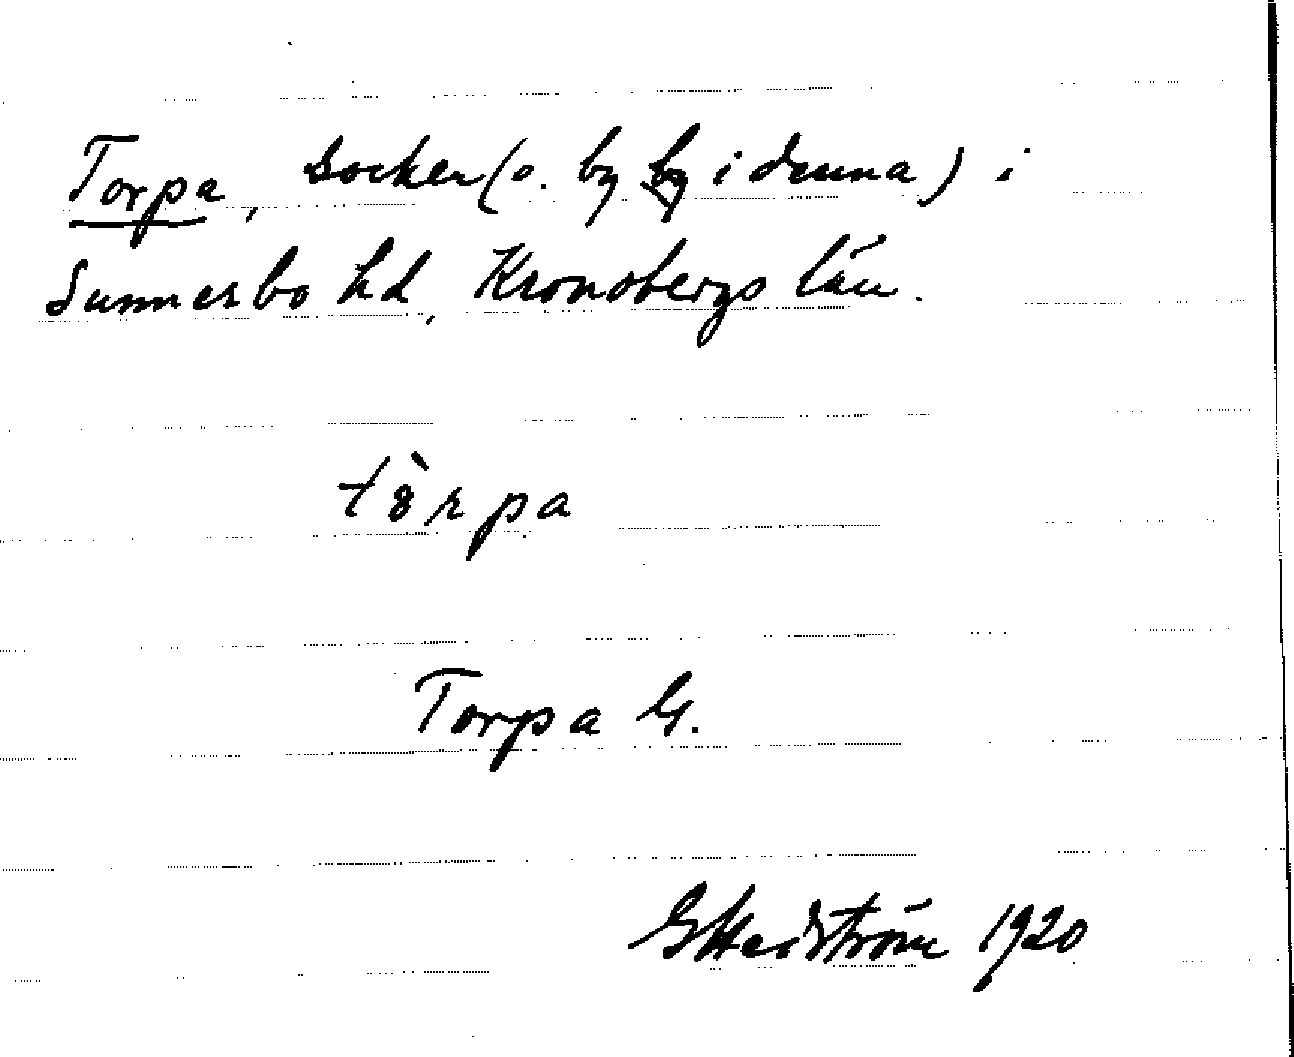 Torpa, socken (o. by by i denna) i
Sunnerbo hd, Kronobergs län.
tòrpa
Torpa G.
G Hedström 1920